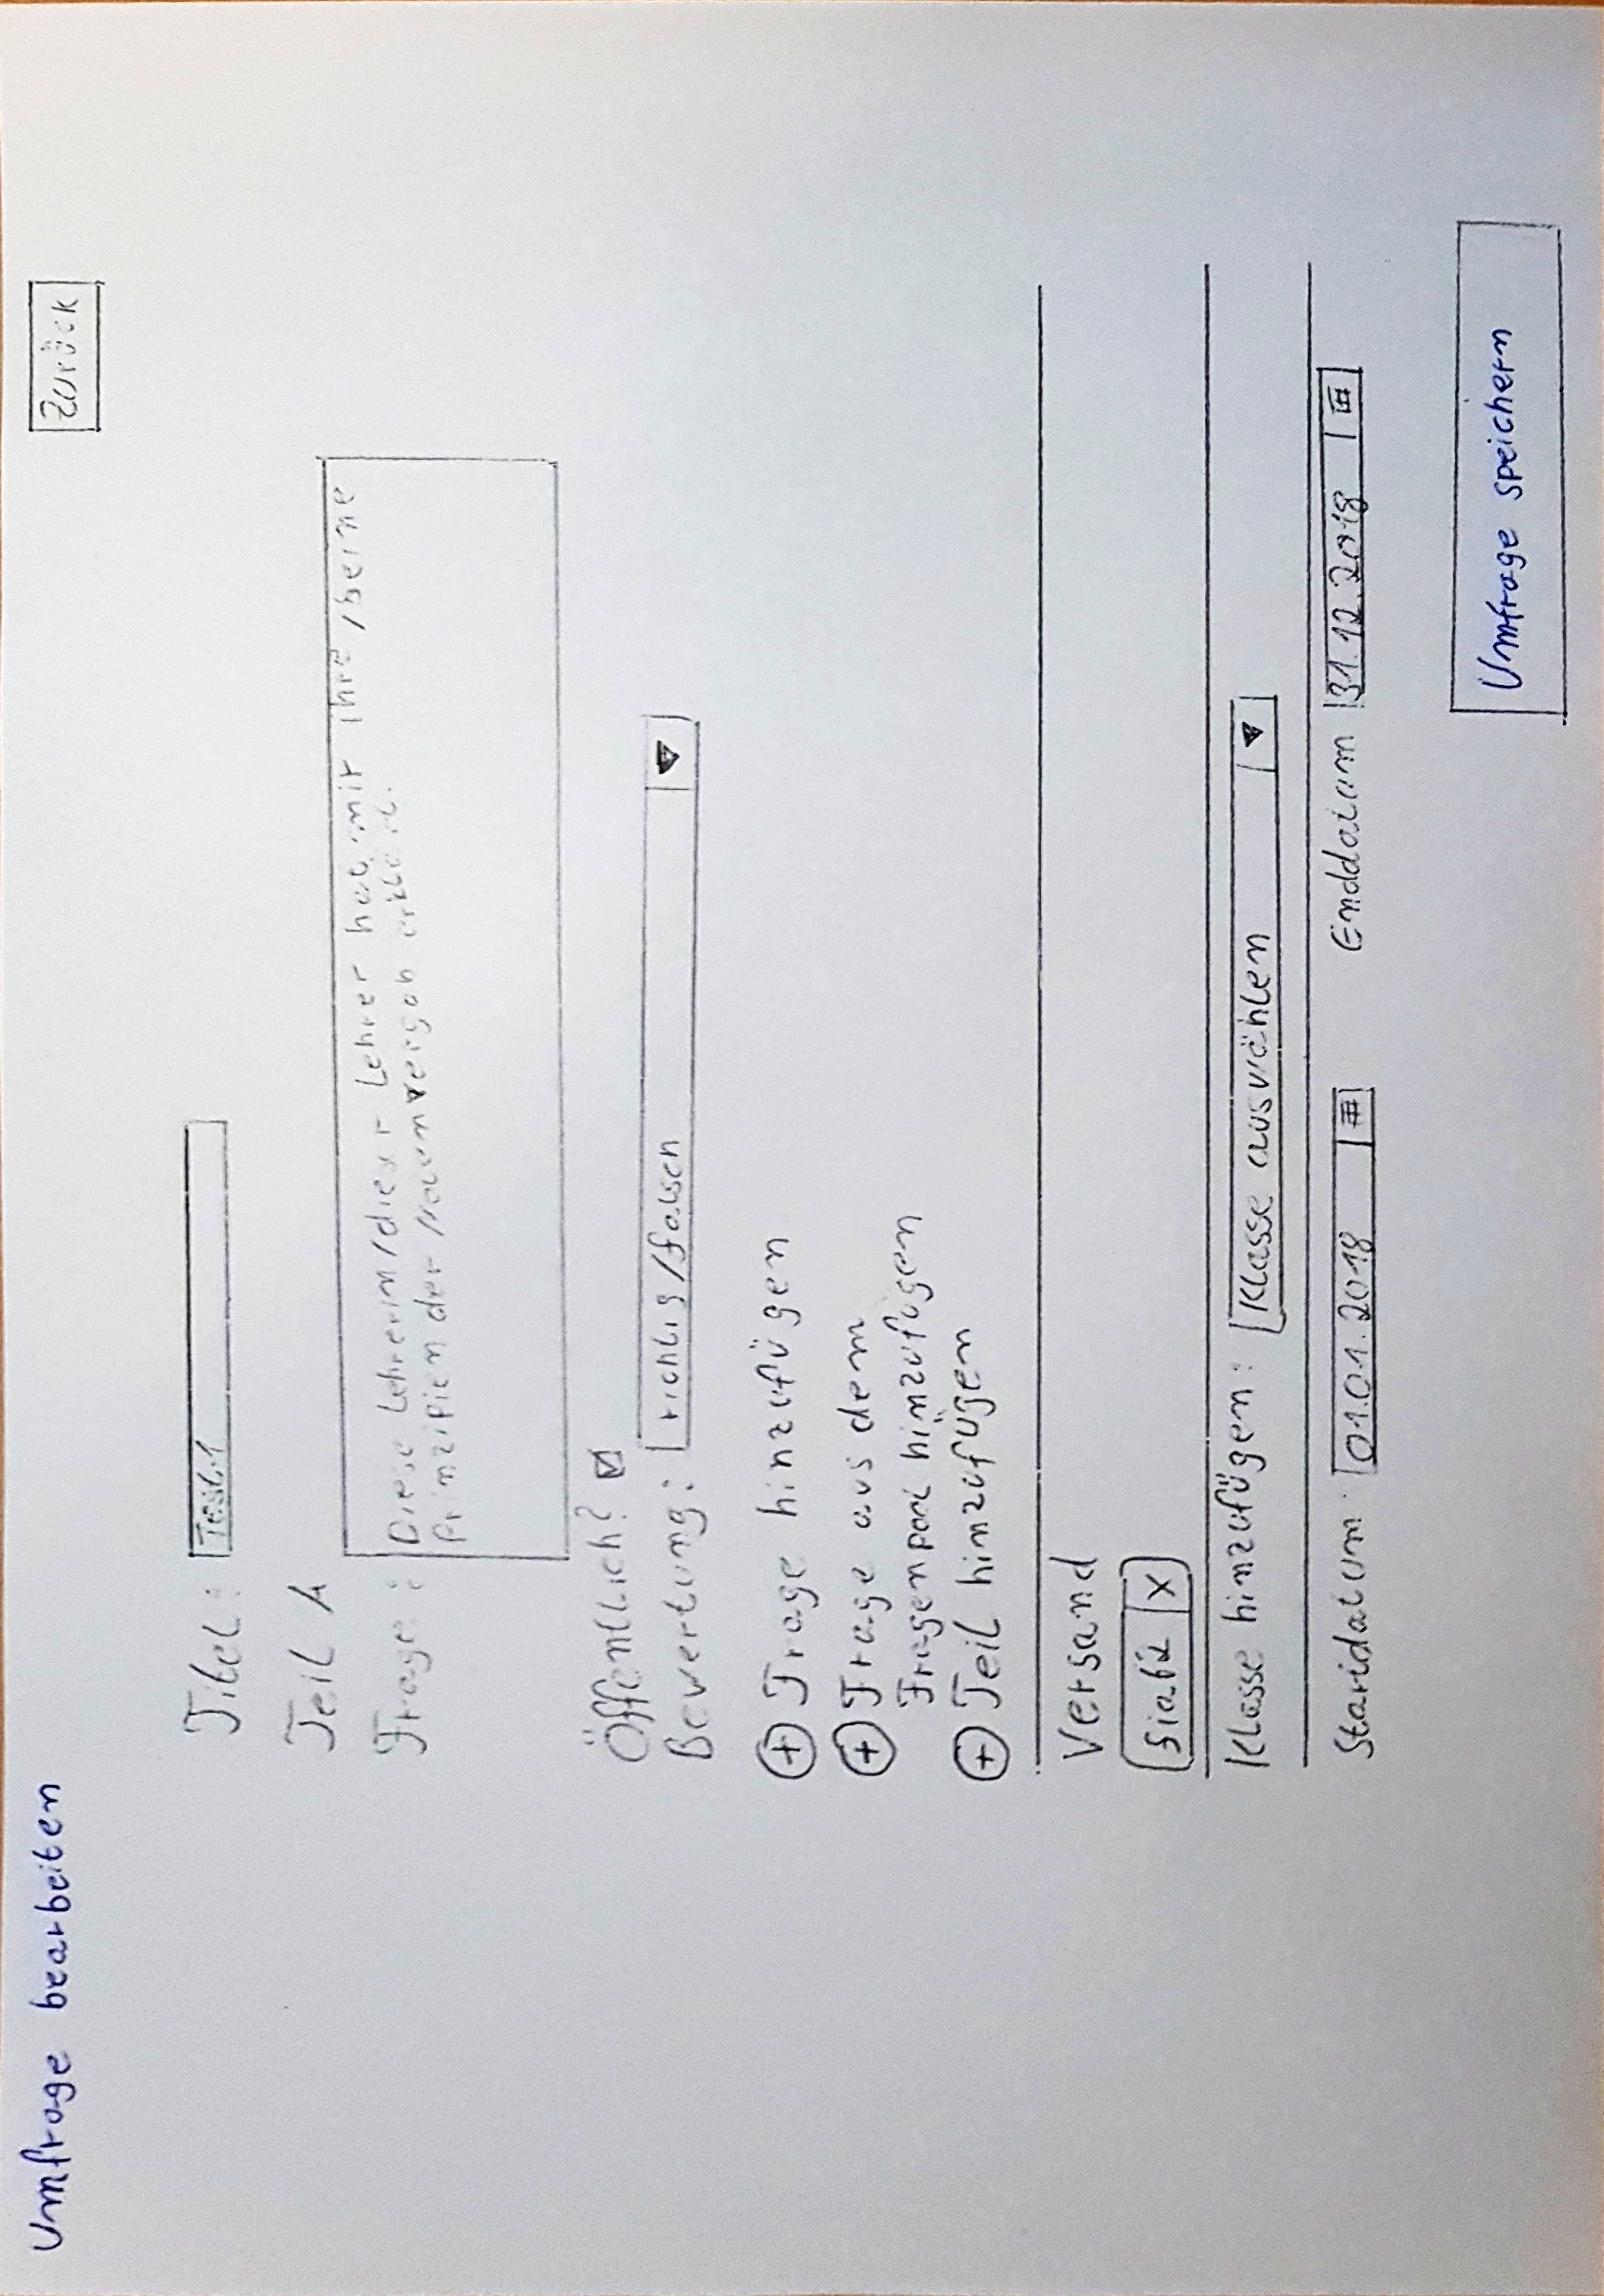 Umfrage bearbeiten
Zurück
Titel: Test1
Teil A
Frage: Diese Lehrerin/dieser Lehrer hat mir ihre/seine
Prinzipien der Notenvergab erklärt.
Öffentlich?
Bewertung: richtig/falsch
+ Frage hinzufügen
+ Frage aus dem
Fragenpool hinzufügen
+ Teil hinzufügen
Versand
fia62 X
Klasse hinzufügen: Klasse auswählen
Startdatum: 01.01.2018 Enddatum 31.12.2018
Umfrage speichern